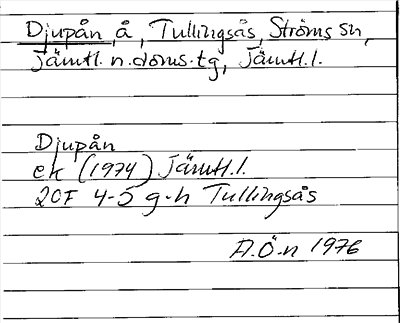 Djupån, å, Tullingsås, Ströms sn,
Jämtl. n. doms. tg, Jämtl. l.
Djupån
ek (1974) Jämtl. l.
20F 4-5 g-h Tullingsås
A.Ö-n 1976